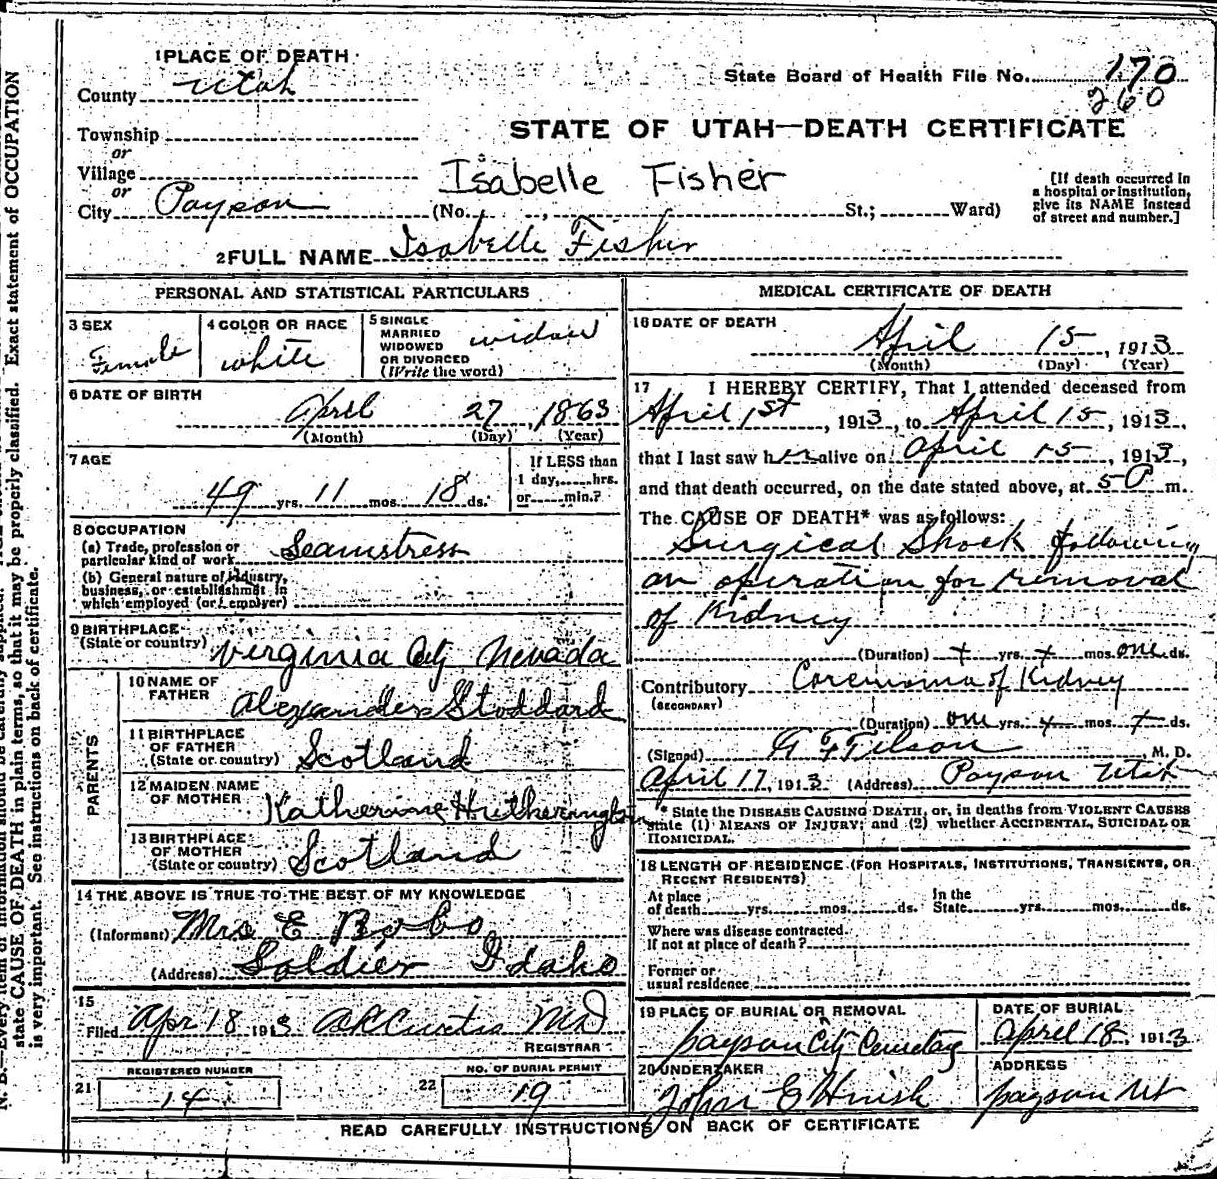 1 PLACE OF DEATH
County Utah
State Board of Health File No. 170
260
Township
or
STATE OF UTAH—DEATH CERTIFICATE
Village
or
Isabelle Fisher
[If death occurred in
a hospital or institution,
give its NAME instead
of street and number.]
City Payson (No. , St.; Ward)
2 FULL NAME Isabelle Fisher
PERSONAL AND STATISTICAL PARTICULARS
3 SEX
Female
4 COLOR OR RACE
white
5 SINGLE
MARRIED
WIDOWED
OR DIVORCED
(Write the word)
widow
6 DATE OF BIRTH
April 27, 1863
(Month) (Day) (Year)
7 AGE
49 yrs. 11 mos. 18 ds.
If LESS than
1 day, hrs.
or min.?
8 OCCUPATION
(a) Trade, profession or
particular kind of work Seamstress
(b) General nature of industry,
business, or establishment in
which employed (or employer)
9 BIRTHPLACE
(State or country) Virginia City Nevada
PARENTS
10 NAME OF
FATHER
Alexander Stoddard
11 BIRTHPLACE
OF FATHER
(State or country) Scotland
12 MAIDEN NAME
OF MOTHER
Katherine Hutherington
13 BIRTHPLACE
OF MOTHER
(State or country) Scotland
14 THE ABOVE IS TRUE TO THE BEST OF MY KNOWLEDGE
(Informant) Mrs E Bobo
(Address) Soldier Idaho
15
Filed Apr 18 1913 Curtis MD
REGISTRAR
REGISTERED NUMBER
21 14
NO. OF BURIAL PERMIT
22 19
MEDICAL CERTIFICATE OF DEATH
16 DATE OF DEATH
April 15, 1913
(Month) (Day) (Year)
17 I HEREBY CERTIFY, That I attended deceased from
April 1st, 1913, to April 15, 1913,
that I last saw her alive on April 15, 1913,
and that death occurred, on the date stated above, at 5 P m.
The CAUSE OF DEATH* was as follows:
Surgical Shock following
an operation for removal
of Kidney
(Duration) + yrs. + mos. one ds.
Contributory Carcinoma of Kidney
(SECONDARY)
(Duration) one yrs. + mos. + ds.
(Signed) Tilson, M. D.
April 17, 1913 (Address) Payson Utah
* State the DISEASE CAUSING DEATH, or, in deaths from VIOLENT CAUSES
state (1) MEANS OF INJURY; and (2) whether ACCIDENTAL, SUICIDAL OR
HOMICIDAL.
18 LENGTH OF RESIDENCE (FOR HOSPITALS, INSTITUTIONS, TRANSIENTS, OR
RECENT RESIDENTS)
At place
of death yrs. mos. ds.
In the
State yrs. mos. ds.
Where was disease contracted
if not at place of death?
Former or
usual residence
19 PLACE OF BURIAL OR REMOVAL
Payson City Cemetery
DATE OF BURIAL
April 18, 1913
20 UNDERTAKER
John E Huish
ADDRESS
Payson Ut
READ CAREFULLY INSTRUCTIONS ON BACK OF CERTIFICATE
N. B.—Every item of information should be carefully supplied.
state CAUSE OF DEATH in plain terms, so that it may be properly classified. Exact statement of OCCUPATION
is very important. See instructions on back of certificate.